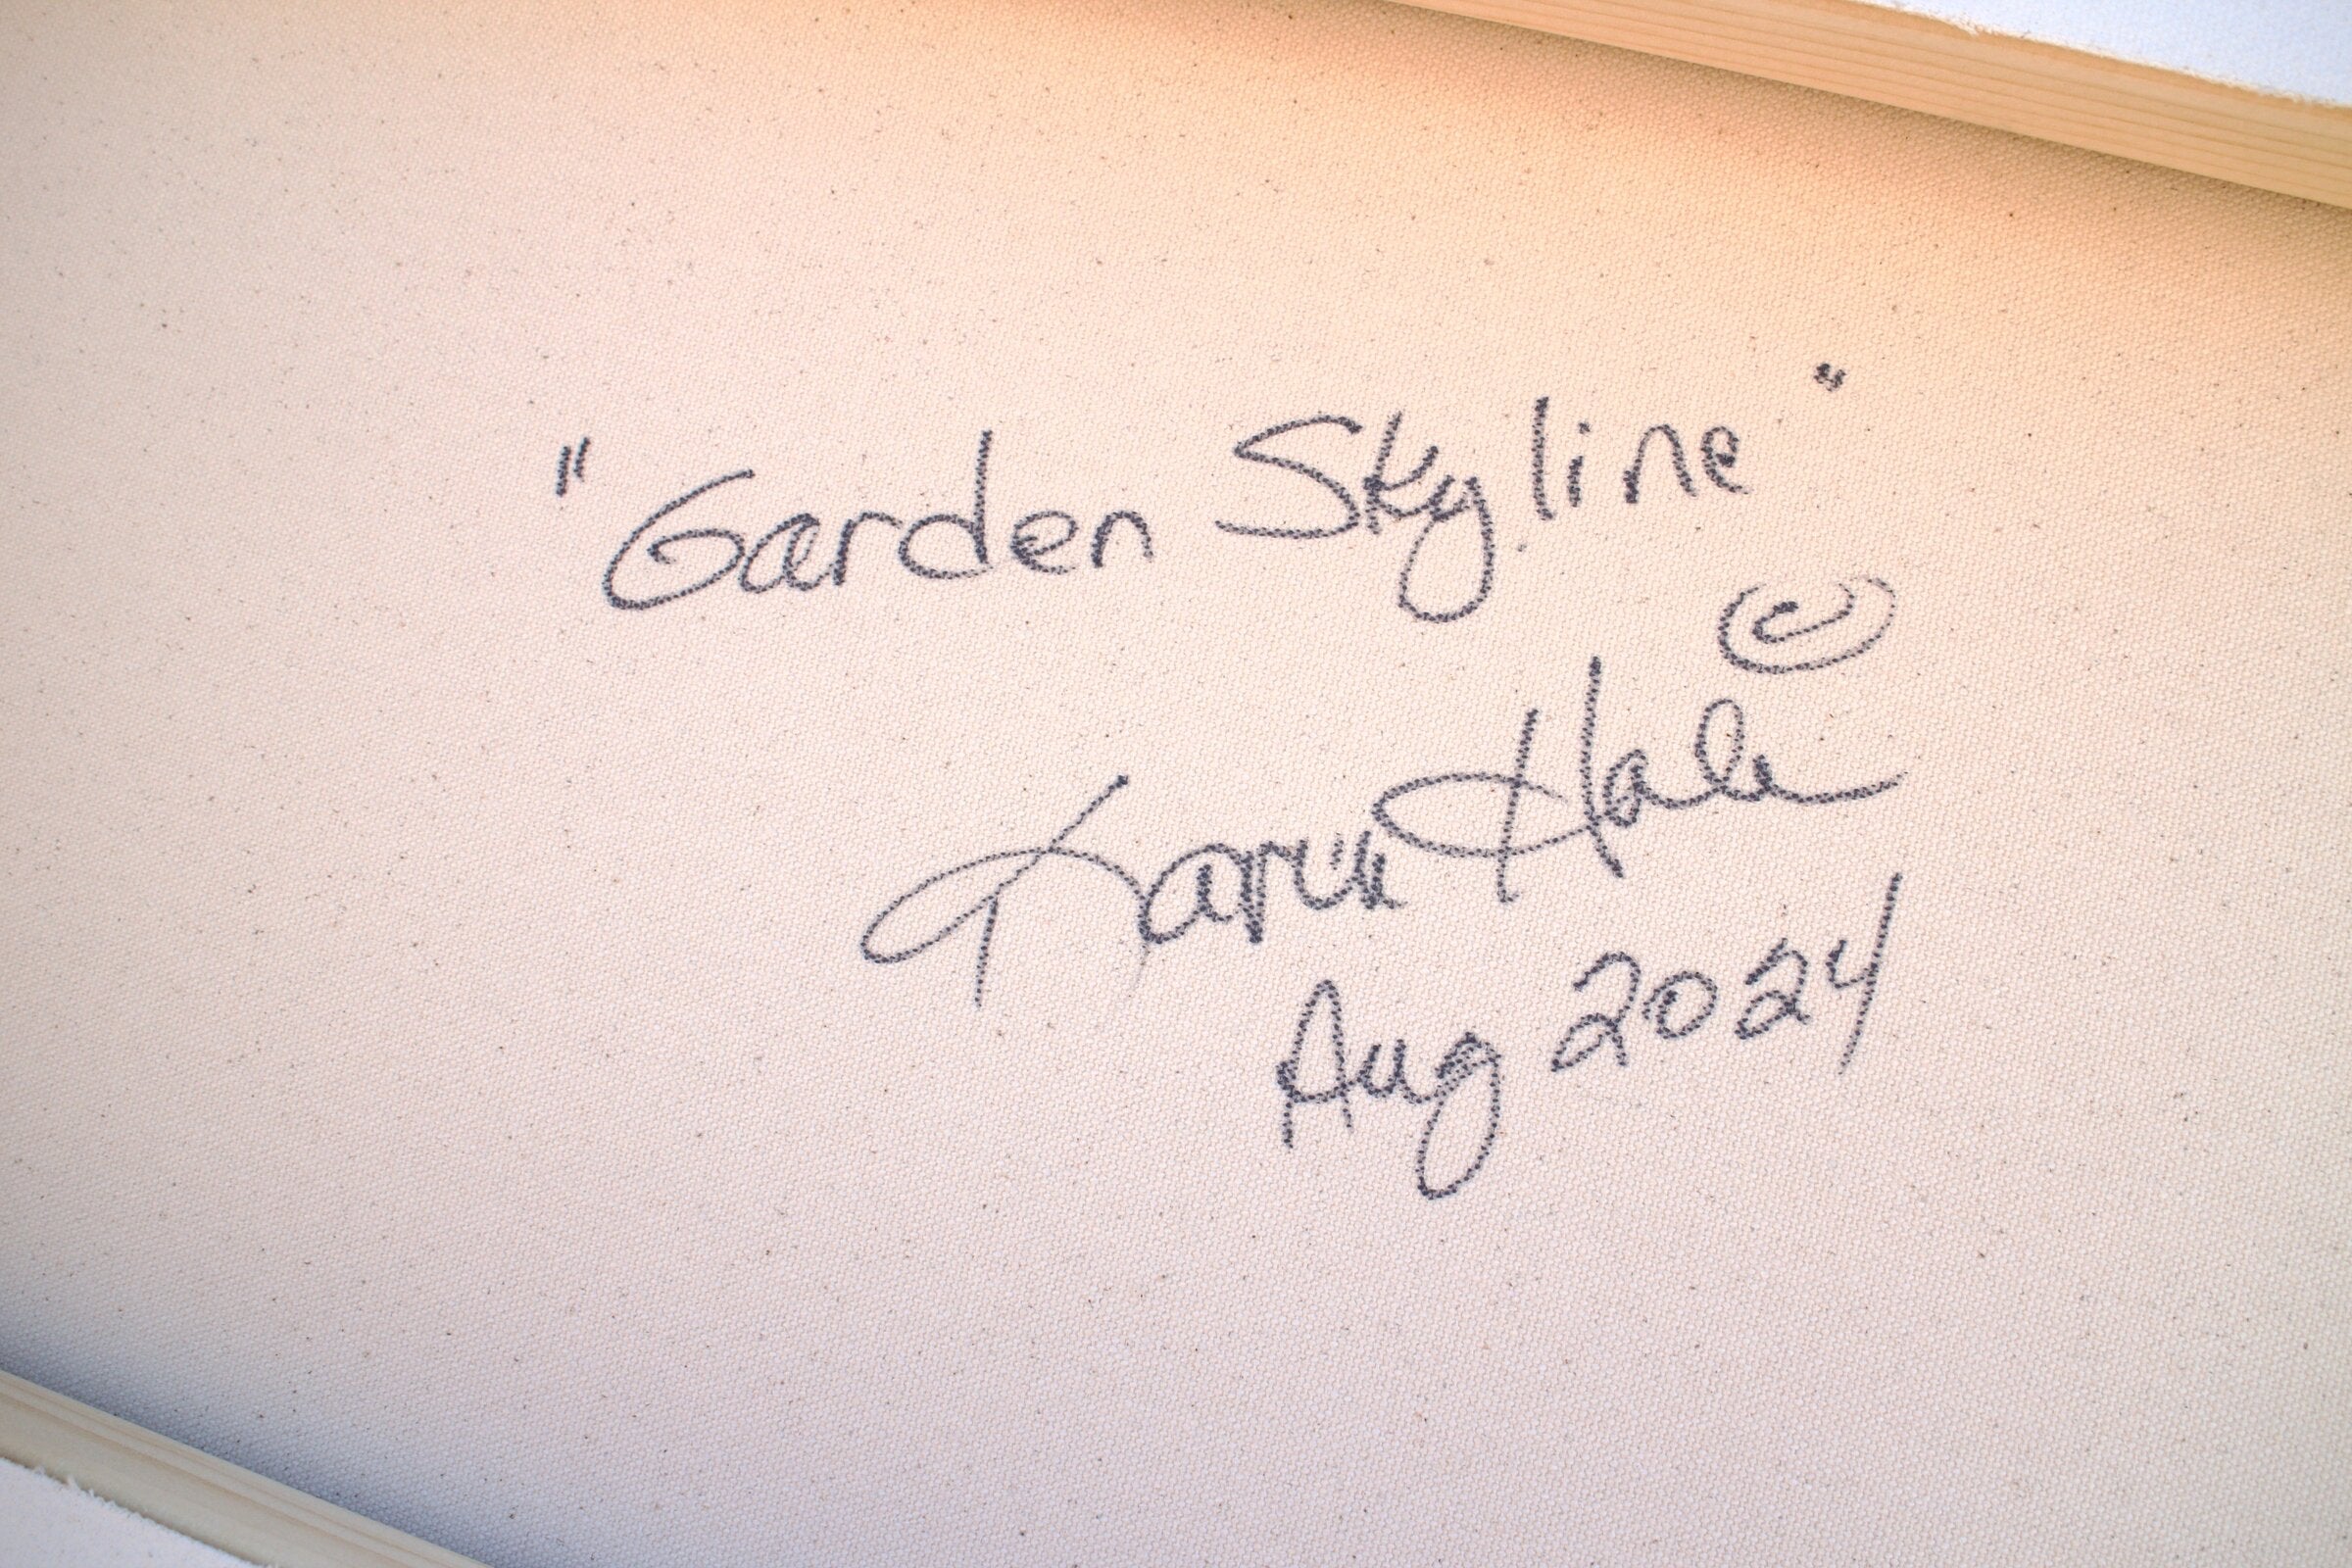 "Garden Skyline"
©
Karen Hale
Aug 2024